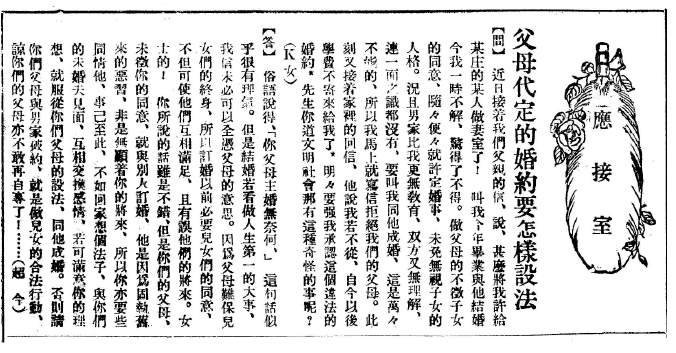 應接室
父母代定的婚約要怎樣設法
【問】 近日接着我們父親的信、說、甚麼將我許給
某庄的某人做妻室了！ 叫我今年畢業與他結婚
今我一時不解、驚得了不得。做父母的不徵子女
的同意、隨々便々就許定婚事、未免無視子女的
人格。況且男家比我更無敎育、双方又無理解、
連一面之識都沒有、要叫我同他成婚、這是萬々
不能的、所以我馬上就寫信拒絕我們的父母。此
刻又接着家裡的回信、他說我若不從、自今以後
學費不寄來給我了。明々要强我承認這個違法的
婚約。先生你道文明社會那有這種奇怪的事呢？
（K女）
【答】 俗語說得、「你父母主婚無奈何、」這句話似
乎很有理氣。但是結婚若看做人生第一的大事、
我信未必可以全憑父母的意思。因爲父母難保兒
女們的終身、所以訂婚以前必要兒女們的同意、
不但可使他們互相滿足、且有誤他們的將來。女
士的！ 你所說的話雖是不錯、但是你們的父母、
未徵你的同意、就與別人訂婚、他是因爲固執舊
來的惡習、非是無顧着你的將來、所以你亦要些
同情他、事己至此、不如回家想個法子、與你們
的未婚夫見面、互相交換感情、若可滿意你的理
想、就服從你們父母的設法、同他成婚。否則請
你們父母與男家破約、就是做兒女的合法行動、
諒你們的父母亦不敢再自專了！……（超今）